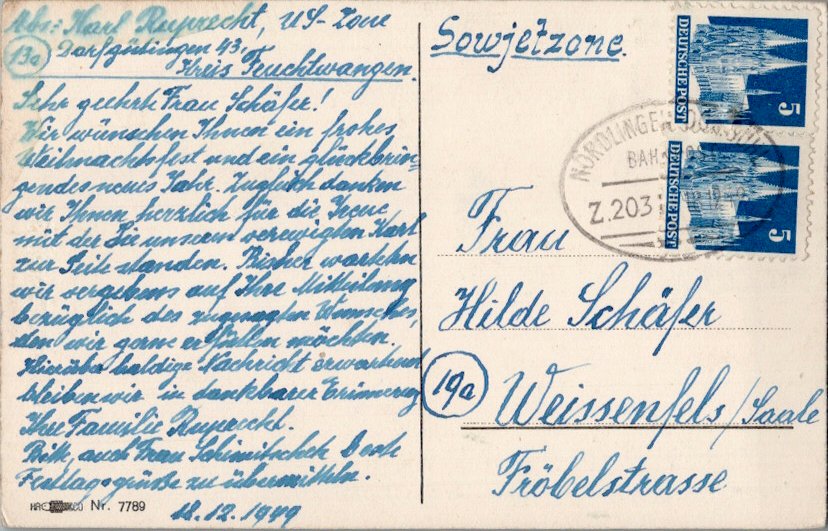 Abs: Karl Ruprecht, US-Zone
13a Dorfgütingen 43,
Kreis Feuchtwangen.
Sehr geehrte Frau Schäfer!
Wir wünschen Ihnen ein frohes
Weihnachtsfest und ein glückbrin-
gendes neues Jahr. Zugleich danken
wir Ihnen herzlich für die Treue
mit der Sie unserm verewigten Karl
zur Seite standen. Bisher warteten
wir vergebens auf Ihre Mitteilung
bezüglich des zugesagten Wunsches,
den wir gerne erfüllen möchten.
Hierüber baldige Nachricht erwartend
bleiben wir in dankbarer Erinnerung
Ihre Familie Ruprecht.
Bitte, auch Frau Schimitschek beste
Festtagsgrüße zu übermitteln.
18.12.1949
Nr. 7789
Sowjetzone.
DEUTSCHE POST
5
DEUTSCHE POST
5
NÖRDLINGEN
BAHNPOST
Z.203
Frau
Hilde Schäfer
19a Weissenfels/Saale
Fröbelstrasse